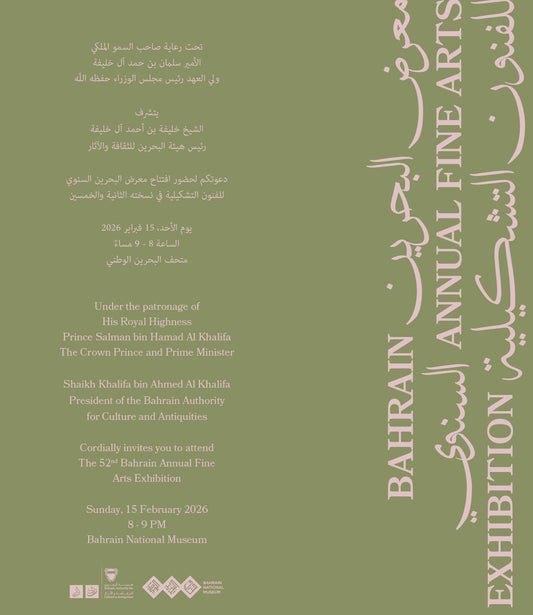 تحت رعاية صاحب السمو الملكي
الأمير سلمان بن حمد آل خليفة
ولي العهد رئيس مجلس الوزراء حفظه الله
يتشرف
الشيخ خليفة بن أحمد آل خليفة
رئيس هيئة البحرين للثقافة والآثار
دعوتكم لحضور افتتاح معرض البحرين السنوي
للفنون التشكيلية في نسخته الثانية والخمسين
يوم الأحد، 15 فبراير 2026
الساعة 8 - 9 مساءً
متحف البحرين الوطني
Under the patronage of
His Royal Highness
Prince Salman bin Hamad Al Khalifa
The Crown Prince and Prime Minister
Shaikh Khalifa bin Ahmed Al Khalifa
President of the Bahrain Authority
for Culture and Antiquities
Cordially invites you to attend
The 52nd Bahrain Annual Fine
Arts Exhibition
Sunday, 15 February 2026
8 - 9 PM
Bahrain National Museum
معرض البحرين
BAHRAIN ANNUAL FINE ARTS
السنوي
للفنون التشكيلية
EXHIBITION
BAHRAIN
NATIONAL
MUSEUM